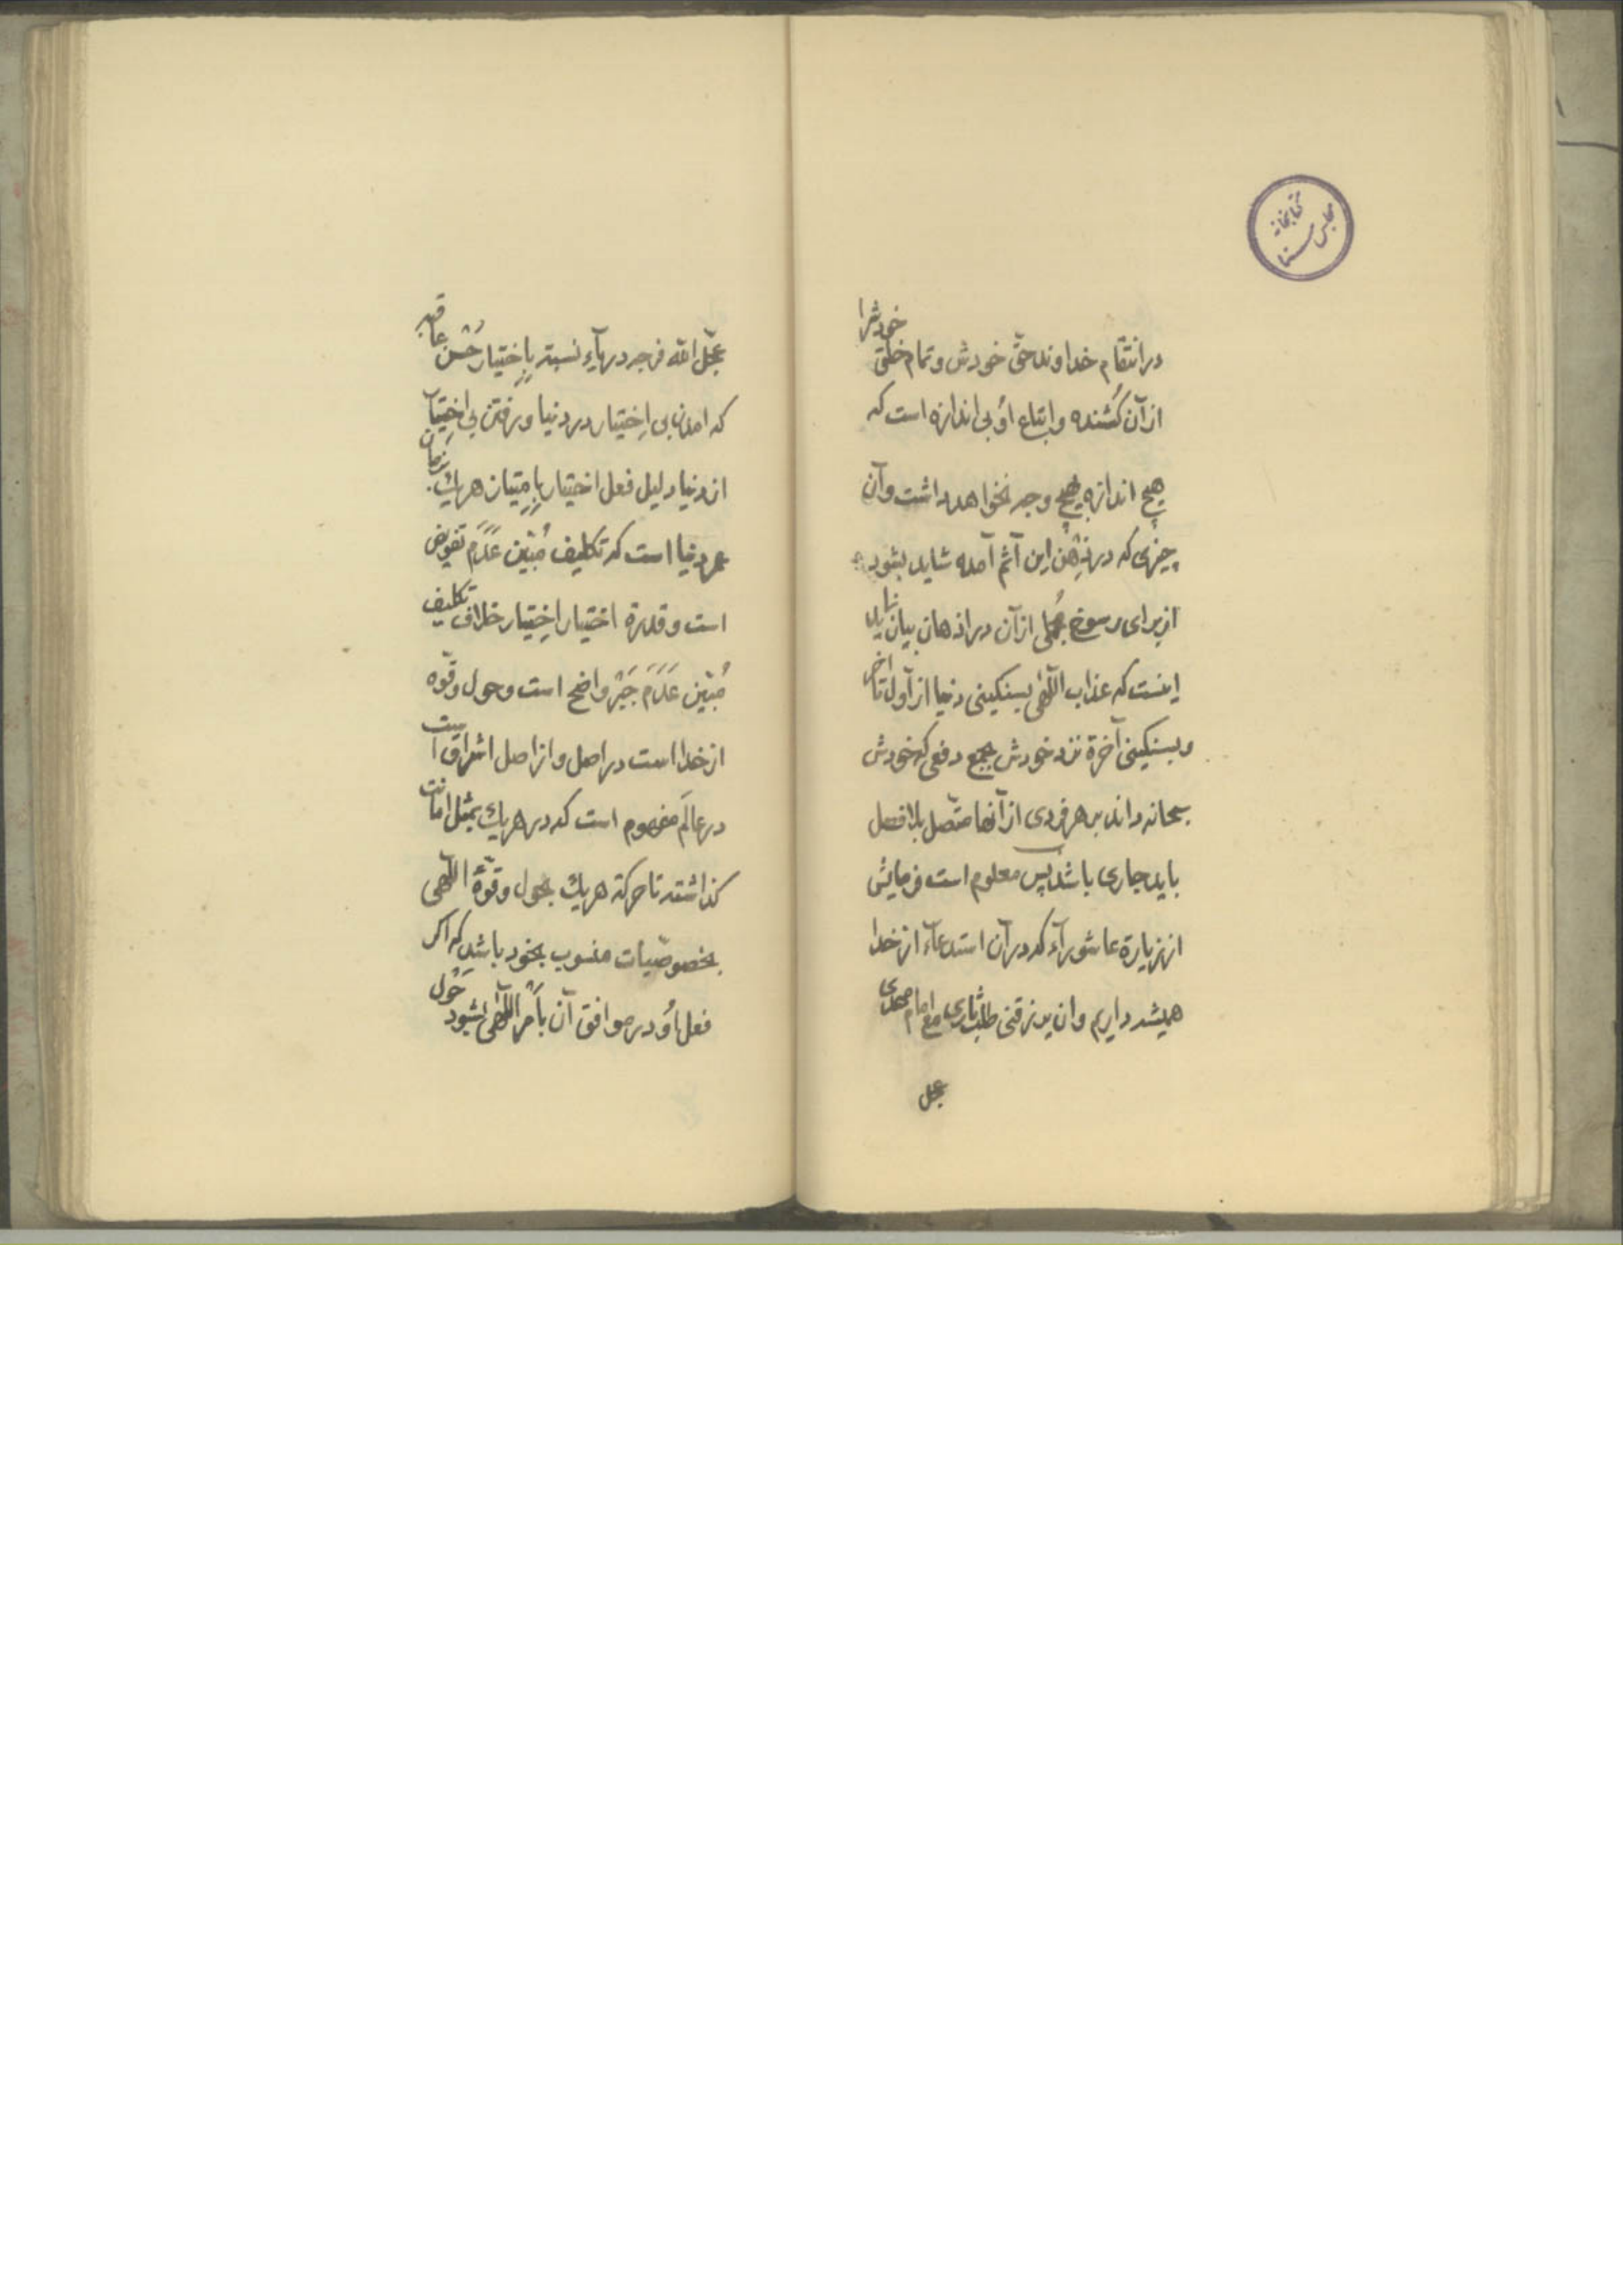 کتابخانه مجلس سنا
در انتقام خداوند حقّ خودش و تمام خلق خودشرا
از آن کُشنده و اتباع اُو بی اندازه است که
هیچ اندازه بهیچ وجه نخواهد داشت و آن
چیزی که در ذِهْن این آثم آمده شاید بشود
از برای رسوخ جُملی از آن در اذهان بیان نماید
اینست که عذاب اللهی بسنکینی دنیا از اول تا اخر
و بسنکینی آخرة نزد خودش بجمع دفعی که خودش
سبحانه داند بر هر فردی از آنها متّصل بلا فصل
باید جاری باشد پس معلوم است فرمایش
از زیارة عاشورآء که در آن استدعآء از خدا
همیشه داریم وان یرزقنی طلب ثاری مع امام مهدی
عجل
عجّل الله فرجه در بآءِ نسبته بِاِختیار حُسْن عاقبه
که امدن بی اِختیار در دنیا و رفتن بی اِختیار
از دنیا دلیل فعل اختیار بِاِمتیاز هریك زمان
عمر دنیا است که تکلیف مُبَیّن عَدَم تفویض
است و قدرة اختیار اِختیار خلاف تکلیف
مُبَیّن عَدَم جَبْر واضح است و حول و قوّه
از خدا است در اصل و از اصل اشراقیت
در عالَم مفهوم است که در هر یك بمثل امانت
کذاشته تا حرکة هر یك بحول و قوّة اللهی
بخصوصیّات منسوب بخود باشد که اکر
فعل اُو در موافق آن بأمر اللهی بشود حَوْل